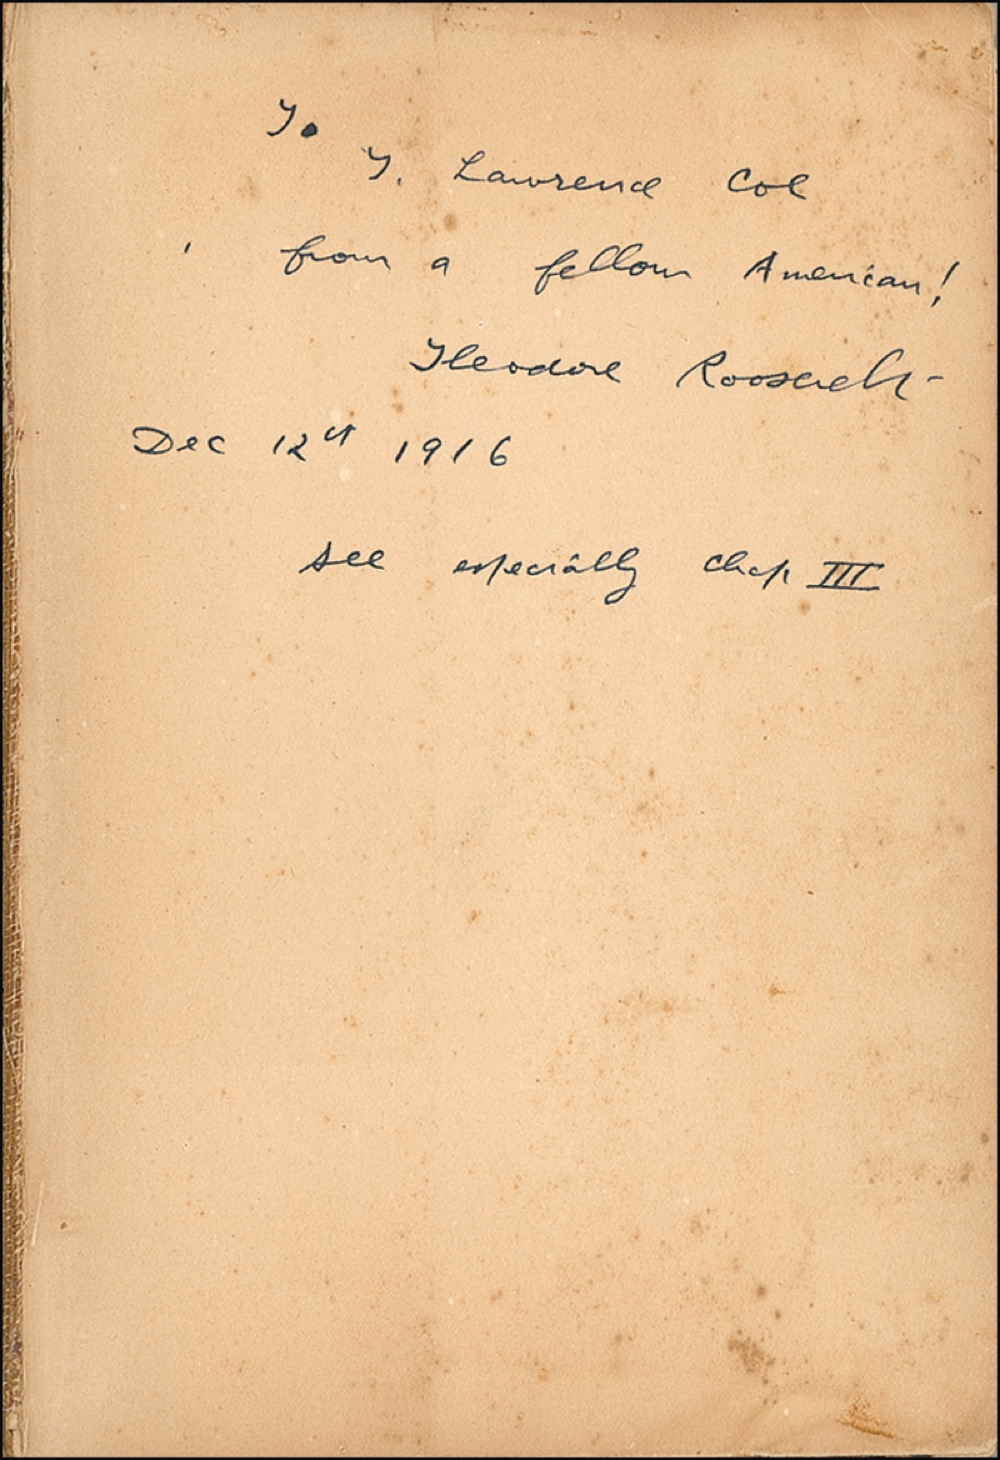 To
T. Lawrence Coe
from a fellow American!
Theodore Roosevelt
Dec 12th 1916
see especially chap III